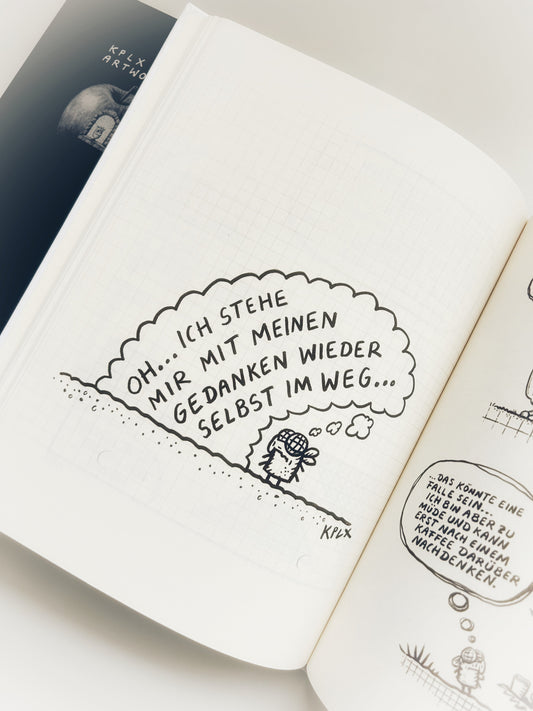 KPLX
OH...ICH STEHE
MIR MIT MEINEN
GEDANKEN WIEDER
SELBST IM WEG...
KPLX
...DAS KÖNNTE EINE
FALLE SEIN...
ICH BIN ABER ZU
MÜDE UND KANN
ERST NACH EINEM
KAFFEE DARÜBER
NACHDENKEN.